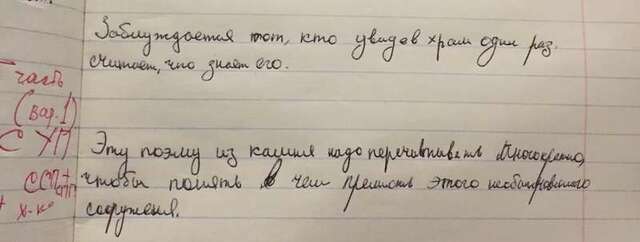 Заблуждается тот, кто увидев храм один раз.
считает, что знает его.
часть
(Вар. 1)
С ХП
Эту поэму из камня надо перечитывать многократно,
ССП+
чтобы понять в чем прелесть этого необыкновенного
сооружения.